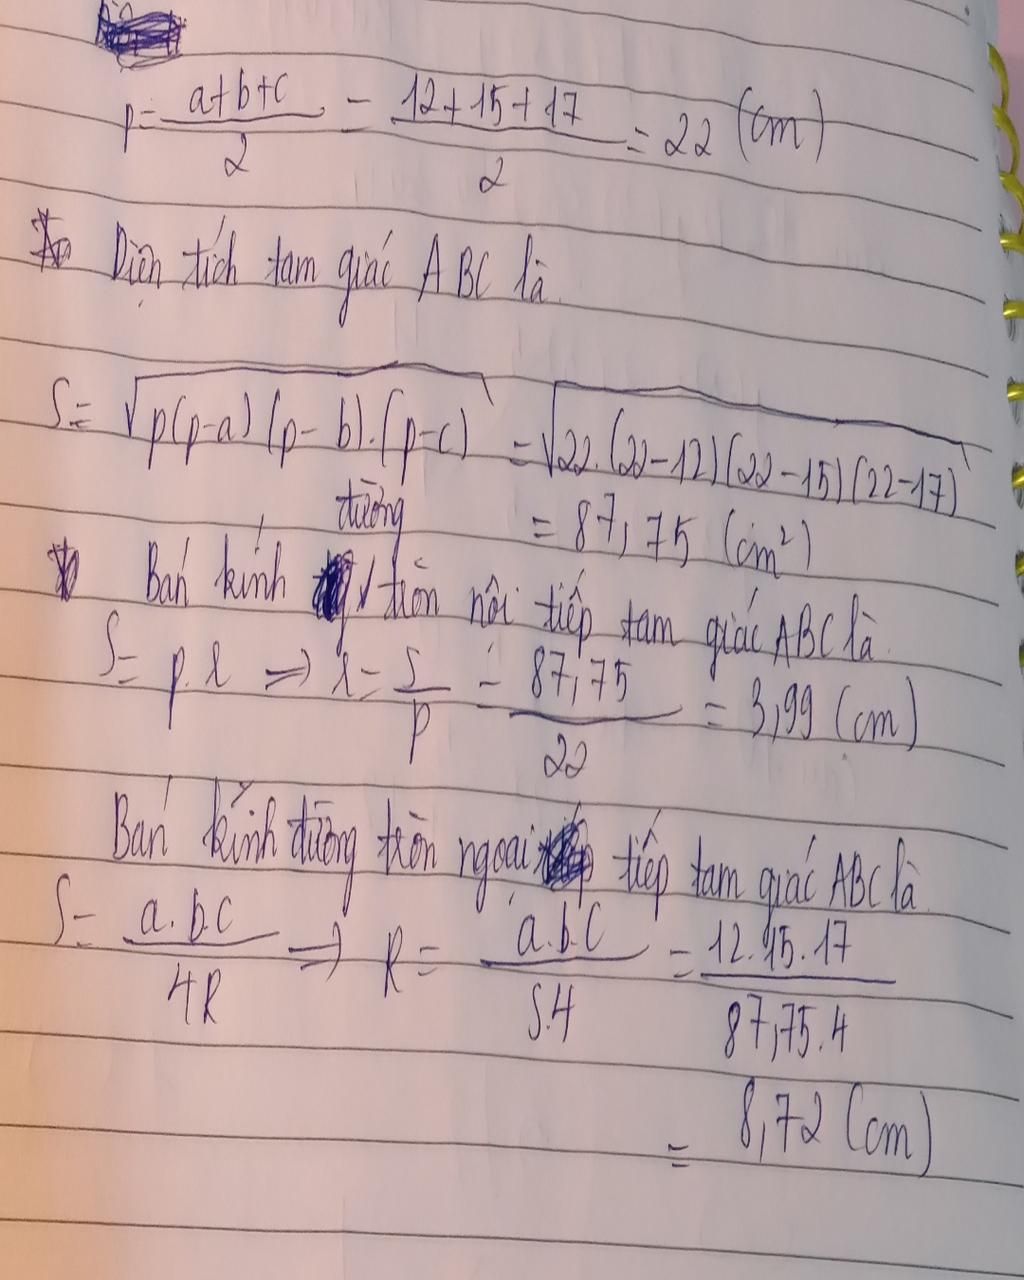 p = a+b+c / 2 = 12+15+17 / 2 = 22 (cm)
* Diện tích tam giác ABC là
S = √p(p-a)(p-b).(p-c) = √22.(22-12)(22-15)(22-17)
= 87,75 (cm²)
* Bán kính đường tròn nội tiếp tam giác ABC là
S = p.r ⇒ r = S / p = 87,75 / 22 = 3,99 (cm)
Bán kính đường tròn ngoại tiếp tam giác ABC là
S = a.b.c / 4R ⇒ R = a.b.c / S.4 = 12.15.17 / 87,75.4
= 8,72 (cm)